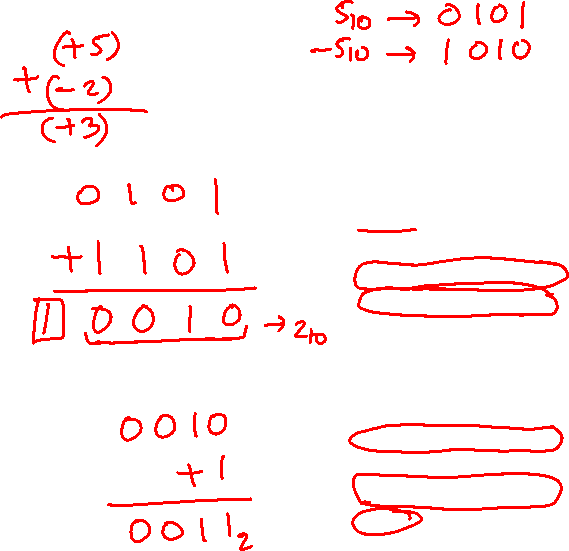 5₁₀ → 0101
-5₁₀ → 1010
(+5)
+ (-2)
(+3)
0101
+1101
1 0010 → 2₁₀
0010
+1
0011₂